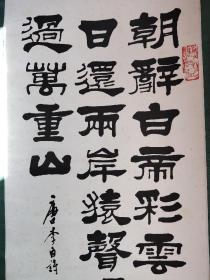 朝辭白帝彩雲
日還兩岸猿聲
過萬重山
唐李白詩